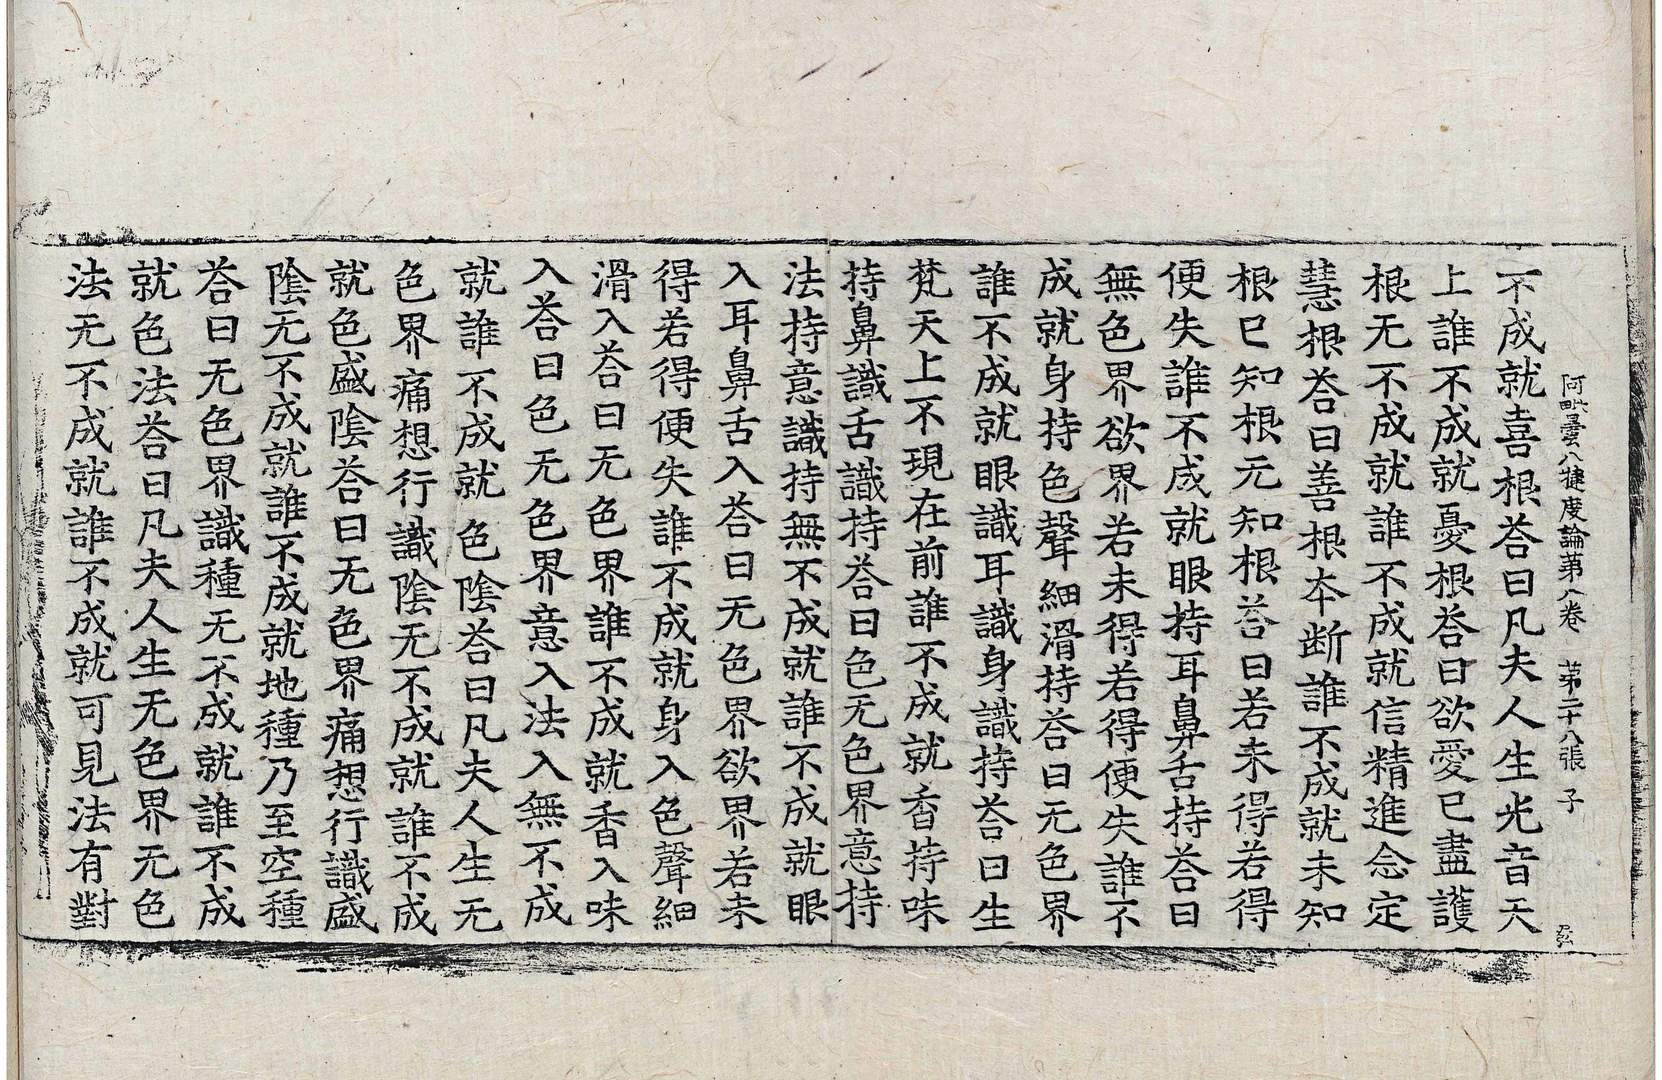 阿毗曇八揵度論第八卷　第二十八張　子
不成就喜根荅曰凡夫人生光音天
上誰不成就憂根荅曰欲愛已盡護
根无不成就誰不成就信精進念定
慧根荅曰善根夲断誰不成就未知
根已知根无知根荅曰若未得若得
便失誰不成就眼持耳鼻舌持荅曰
無色界欲界若未得若得便失誰不
成就身持色聲細滑持荅曰无色界
誰不成就眼識耳識身識持荅曰生
梵天上不現在前誰不成就香持味
持鼻識舌識持荅曰色无色界意持
法持意識持無不成就誰不成就眼
入耳鼻舌入荅曰无色界欲界若未
得若得便失誰不成就身入色聲細
滑入荅曰无色界誰不成就香入味
入荅曰色无色界意入法入無不成
就誰不成就色陰荅曰凡夫人生无
色界痛想行識陰无不成就誰不成
就色盛陰荅曰无色界痛想行識盛
陰无不成就誰不成就地種乃至空種
荅曰无色界識種无不成就誰不成
就色法荅曰凡夫人生无色界无色
法无不成就誰不成就可見法有對